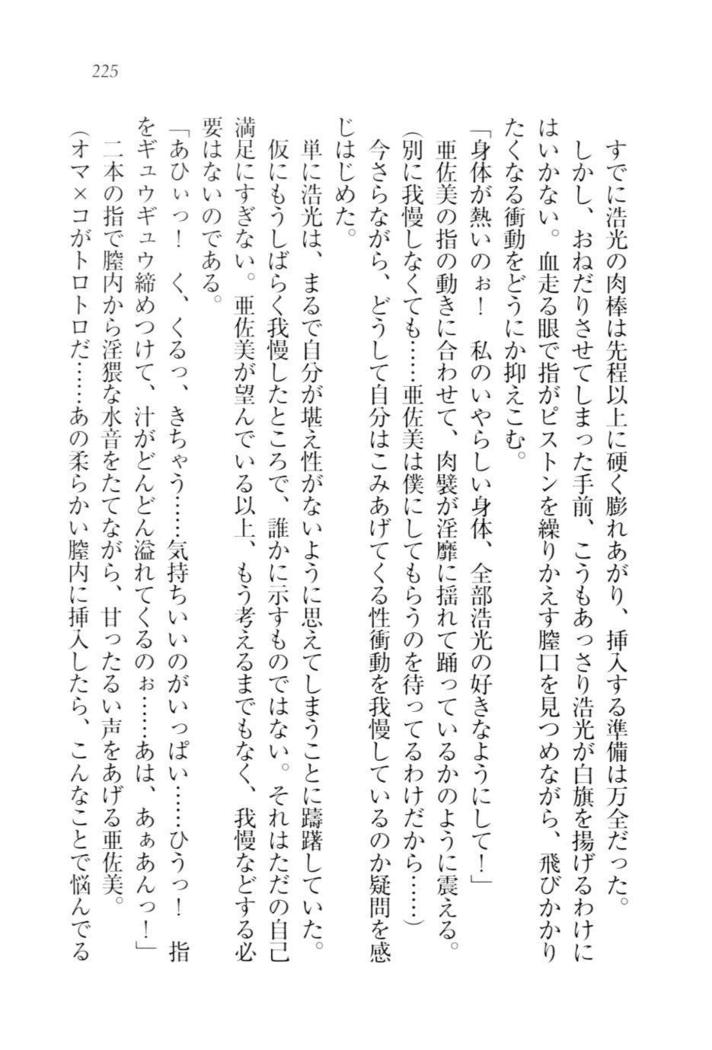 225
すでに浩光の肉棒は先程以上に硬く膨れあがり、挿入する準備は万全だった。
しかし、おねだりさせてしまった手前、こうもあっさり浩光が白旗を揚げるわけに
はいかない。血走る眼で指がピストンを繰りかえす膣口を見つめながら、飛びかかり
たくなる衝動をどうにか抑えこむ。
「身体が熱いのぉ！　私のいやらしい身体、全部浩光の好きなようにして！」
亜佐美の指の動きに合わせて、肉襞が淫靡に揺れて踊っているかのように震える。
（別に我慢しなくても……亜佐美は僕にしてもらうのを待ってるわけだから……）
今さらながら、どうして自分はこみあげてくる性衝動を我慢しているのか疑問を感
じはじめた。
単に浩光は、まるで自分が堪え性がないように思えてしまうことに躊躇していた。
仮にもうしばらく我慢したところで、誰かに示すものではない。それはただの自己
満足にすぎない。亜佐美が望んでいる以上、もう考えるまでもなく、我慢などする必
要はないのである。
「あひぃっ！　く、くるっ、きちゃう……気持ちいいのがいっぱい……ひうっ！　指
をギュウギュウ締めつけて、汁がどんどん溢れてくるのぉ……あは、あぁあんっ！」
二本の指で膣内から淫猥な水音をたてながら、甘ったるい声をあげる亜佐美。
（オマ×コがトロトロだ……あの柔らかい膣内に挿入したら、こんなことで悩んでる